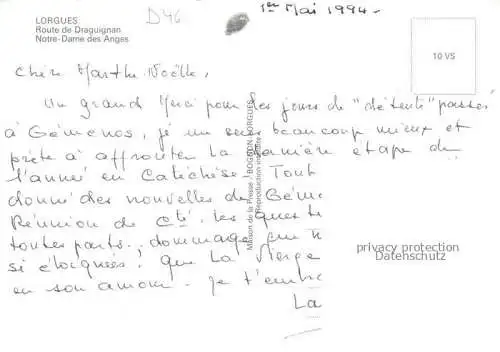 LORGUES
Route de Draguignan
Notre-Dame des Anges
D46
1er Mai 1994-
10 VS
Chère Marthe Noëlle,
Un grand Merci pour les jours de "détente" passés
à Gémenos, je me sens beaucoup mieux et
prête à affronter la dernière étape de
l'année en Catéchèse! Tout
donné des nouvelles de Gém
Réunion de Cté. les ques
toutes parts., dommage que
si éloignées! que La Vierge
en son amour. Je t'emb
La
Maison de la Presse BOGNON LORGUES
Reproduction interdite
privacy protection
Datenschutz